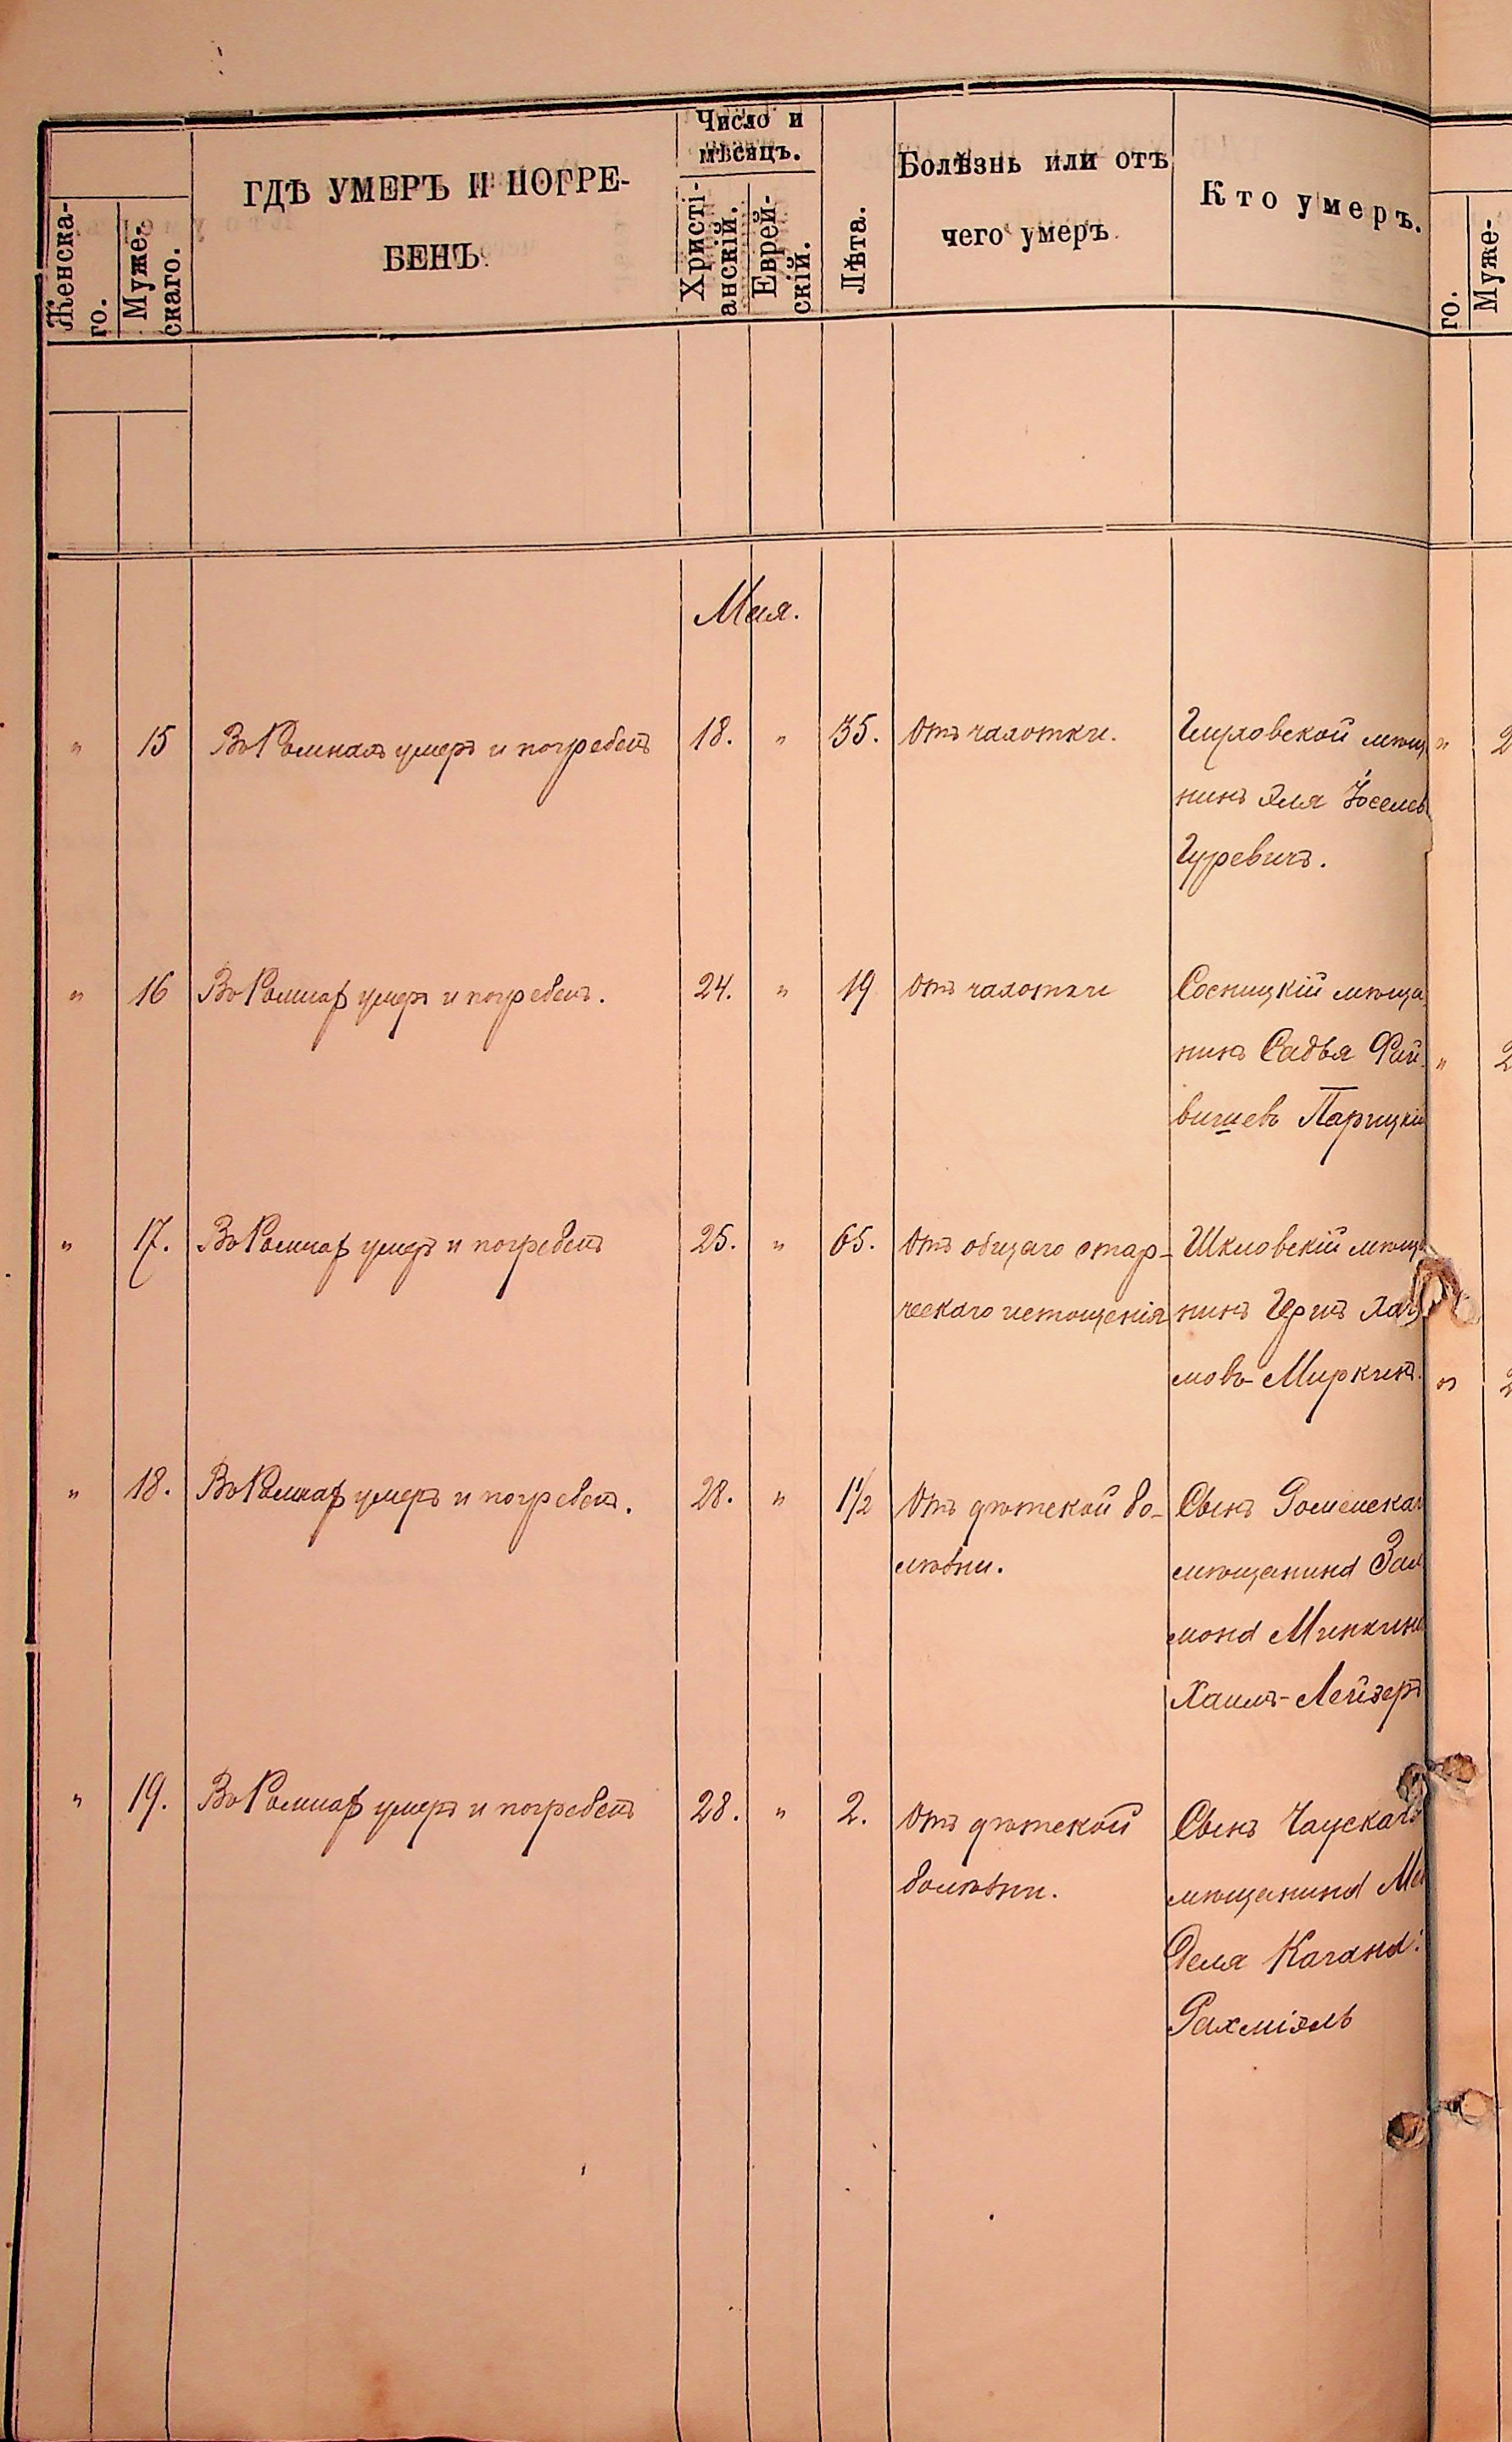 Женска-
го.
Муже-
скаго.
ГДѢ УМЕРЪ И ПОГРЕ-
БЕНЪ.
Число и
мѣсяцъ.
Христі-
анскій.
Еврей-
скій.
Лѣта.
Болѣзнь или отъ
чего умеръ.
Кто умеръ.
го.
Муже-
Мая.
" 15 Въ Ромнахъ умеръ и погребенъ 18. " 35. Отъ чахотки. Глуховской мѣщ
нинъ Эля Іоселев
Гуревичъ.
" 16 Въ Ромнах умеръ и погребенъ. 24. " 19 Отъ чахотки Сосницкій мѣща
нинъ Садья Фай
вишевъ Парицкій
" 17. Въ Ромнах умеръ и погребенъ 25. " 65. Отъ общаго стар-
ческаго истощенія
Шкловскій мѣща
нинъ Гершъ
мовъ Миркинъ.
" 18. Въ Ромнах умеръ и погребенъ. 28. " 1½ Отъ дѣтской бо-
лѣзни.
Сынъ Роменскаг
мѣщанина Зал
мона Минкина
Хаимъ-Лейзеръ
" 19. Въ Ромнах умеръ и погребенъ 28. " 2. Отъ дѣтской
болѣзни.
Сынъ Чаускаго
мѣщанина Ме
деля Кагана:
Рахміэль